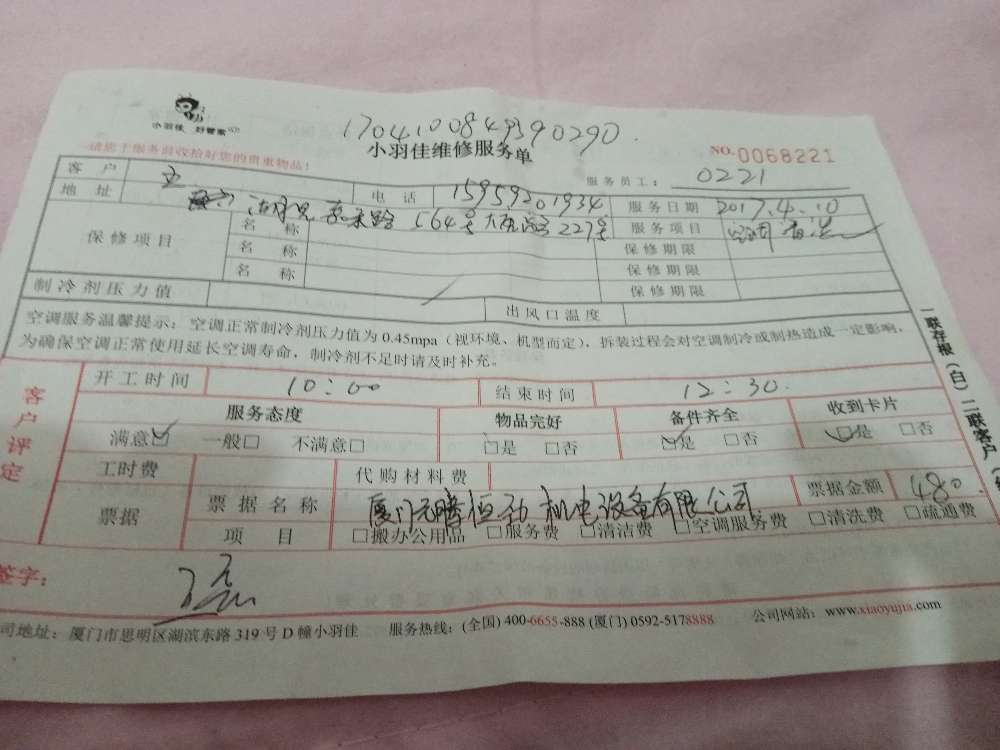 小羽佳 好管家
1704100849390290.
小羽佳维修服务单
NO.0068221
请您于服务前收拾好您的贵重物品!
服务员工: 0221
客户 电话 15959201934 服务日期 2017.4.10
地址 564号 227号 服务项目 空调清洗
保修项目 名称 保修期限
名称 保修期限
名称 保修期限
制冷剂压力值 出风口温度
空调服务温馨提示:空调正常制冷剂压力值为0.45mpa(视环境、机型而定),拆装过程会对空调制冷或制热造成一定影响,
为确保空调正常使用延长空调寿命,制冷剂不足时请及时补充。
客户评定
开工时间 10:00 结束时间 12:30.
服务态度 物品完好 备件齐全 收到卡片
满意☑ 一般□ 不满意□ □是 □否 ☑是 □否 ☑是 □否
工时费 代购材料费
票据 票据名称 厦门元腾恒劲机电设备有限公司 票据金额 480
项目 □搬办公用品 □服务费 □清洁费 □空调服务费 □清洗费 □疏通费
签字:
司地址:厦门市思明区湖滨东路319号D幢小羽佳 服务热线:(全国)400-6655-888(厦门)0592-5178888 公司网站:www.xiaoyujia.com
一联存根(白)二联客户(